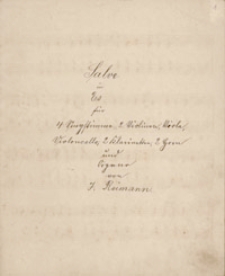 Salve
in
Es
für
4 Singstimmen, 2 Violinen, Viola,
Violoncello, 2 Klarinetten, 2 Horn
und
Organo
von
J. Reimann